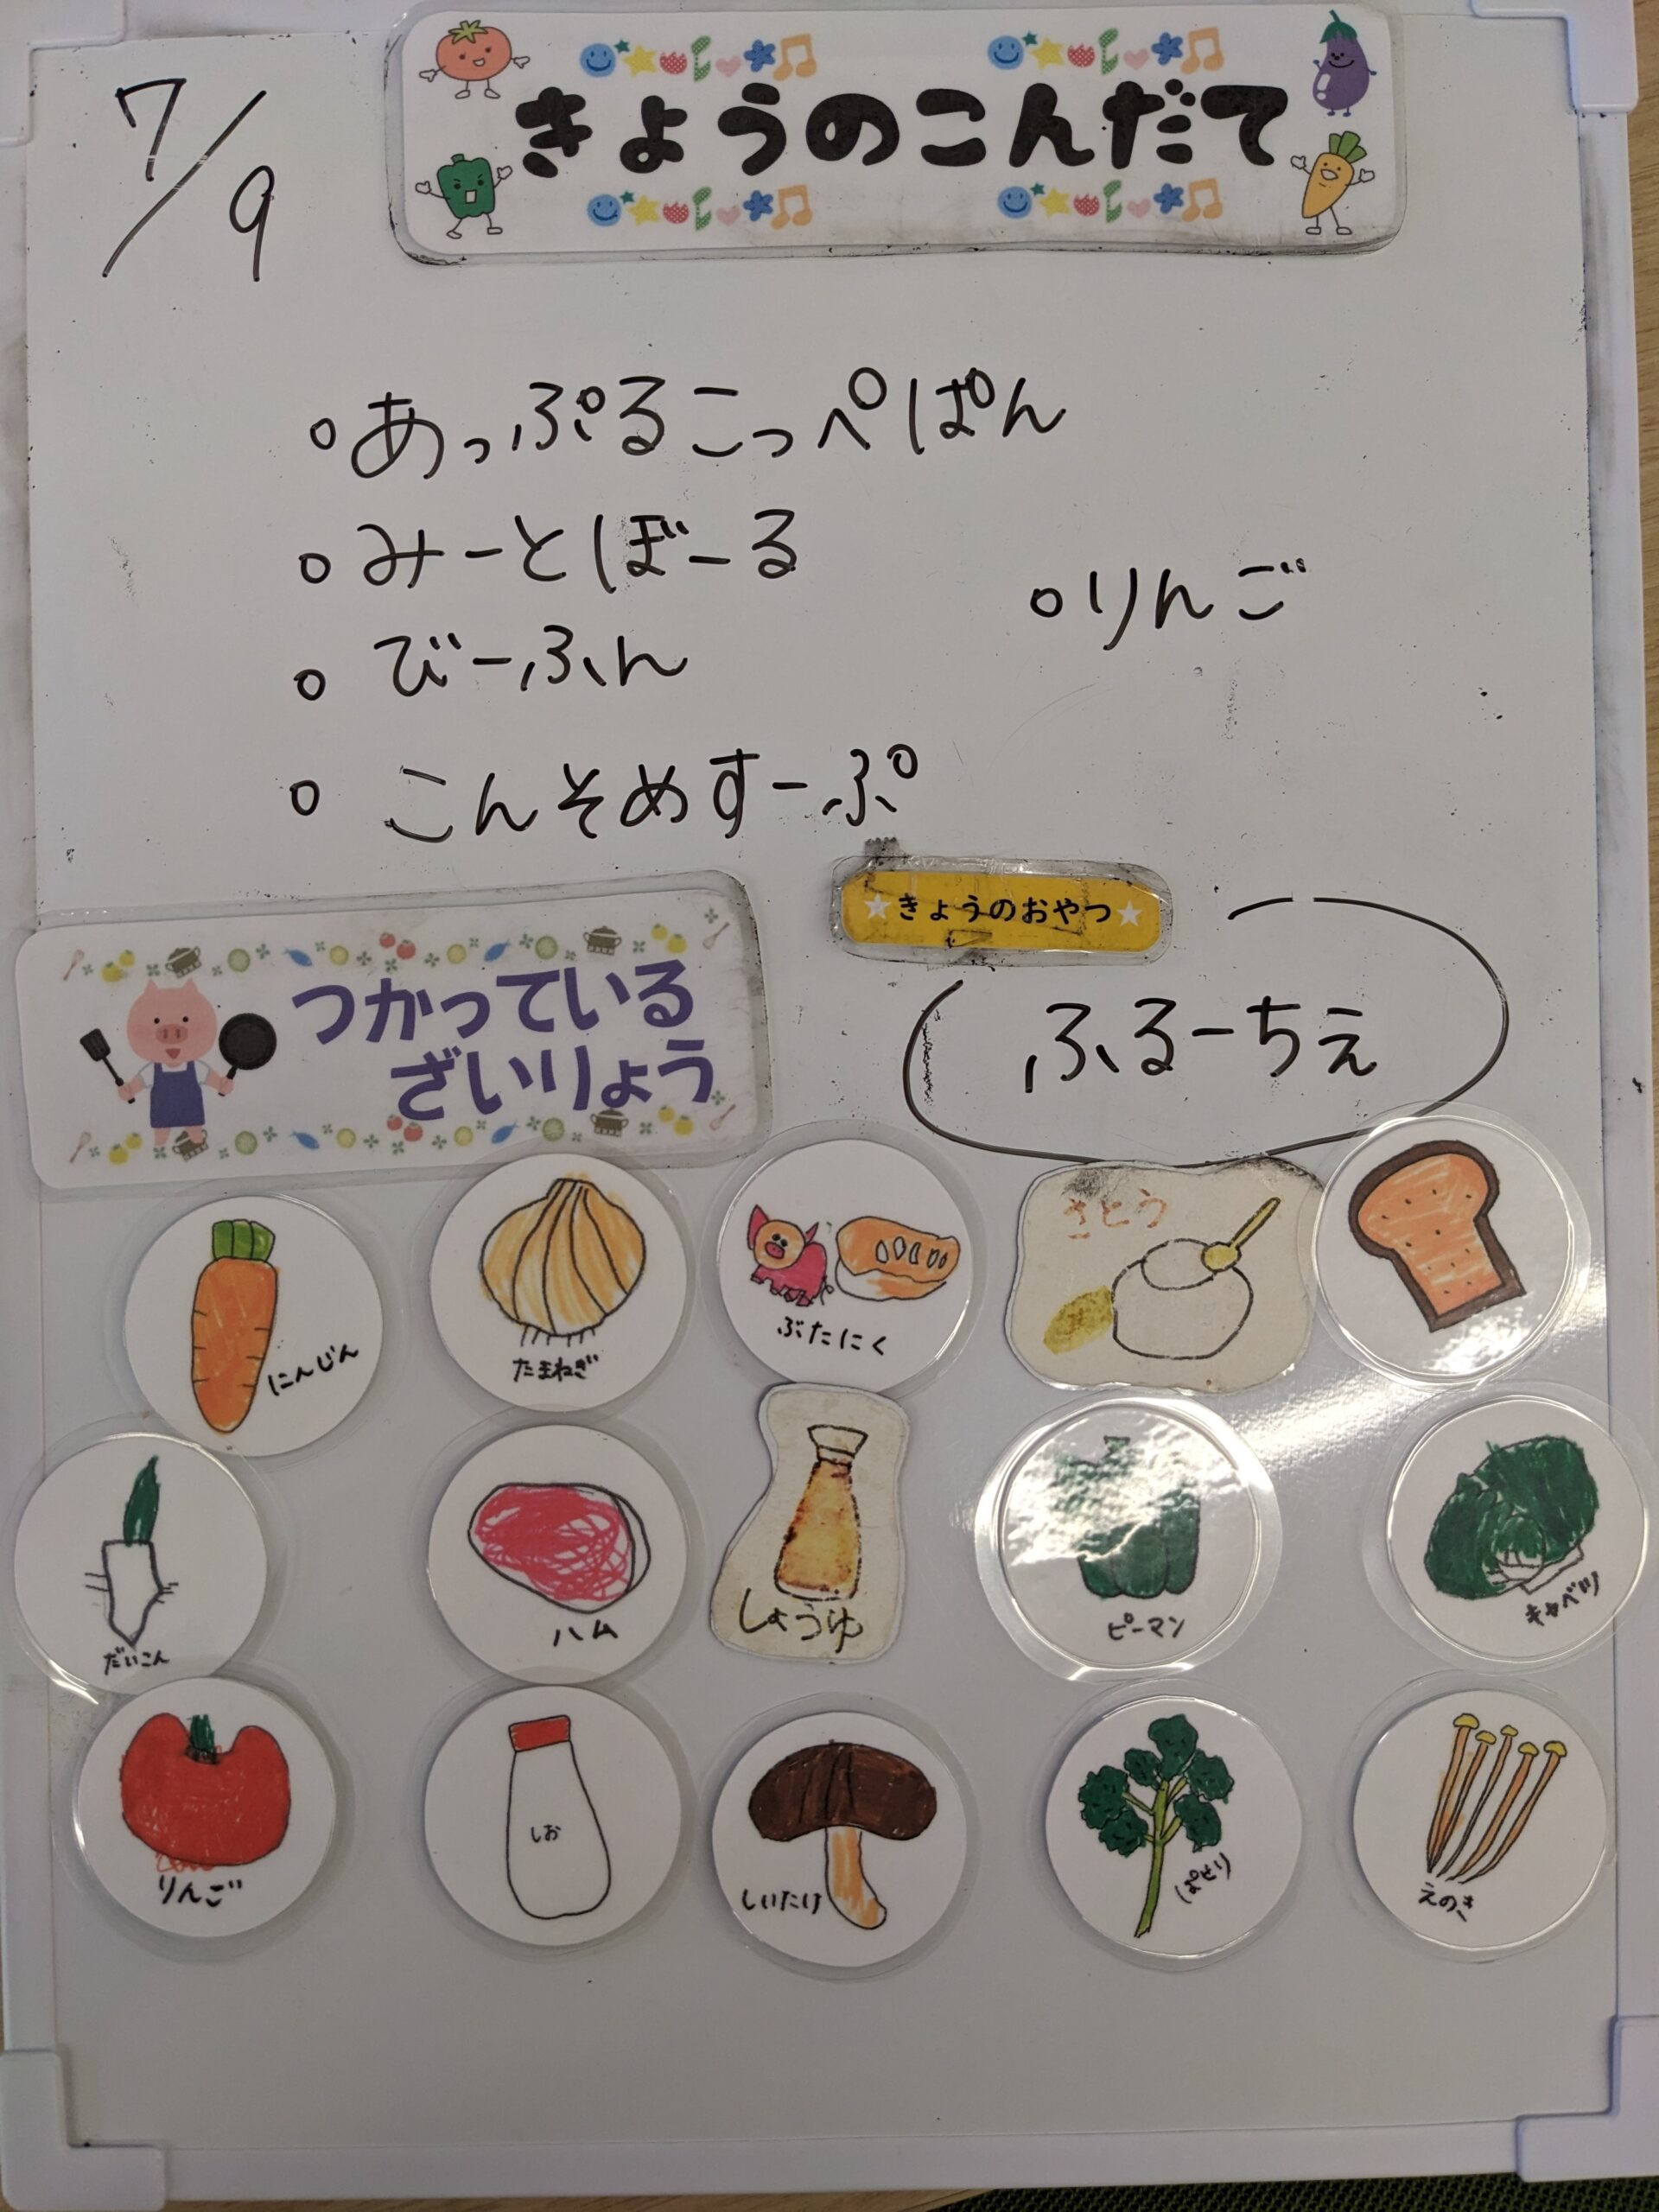 7/9
きょうのこんだて
○あっぷるこっぺぱん
○みーとぼーる
○りんご
○びーふん
○こんそめすーぷ
★きょうのおやつ★
ふるーちぇ
つかっている
ざいりょう
にんじん
たまねぎ
ぶたにく
さとう
だいこん
ハム
しょうゆ
ピーマン
キャベツ
りんご
しお
しいたけ
ぱせり
えのき